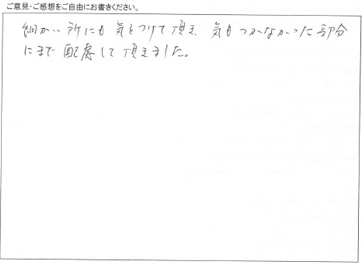 ご意見・ご感想をご自由にお書きください。
細かい所にも気をつけて頂き、気もつかなかった部分
にまで配慮して頂きました。